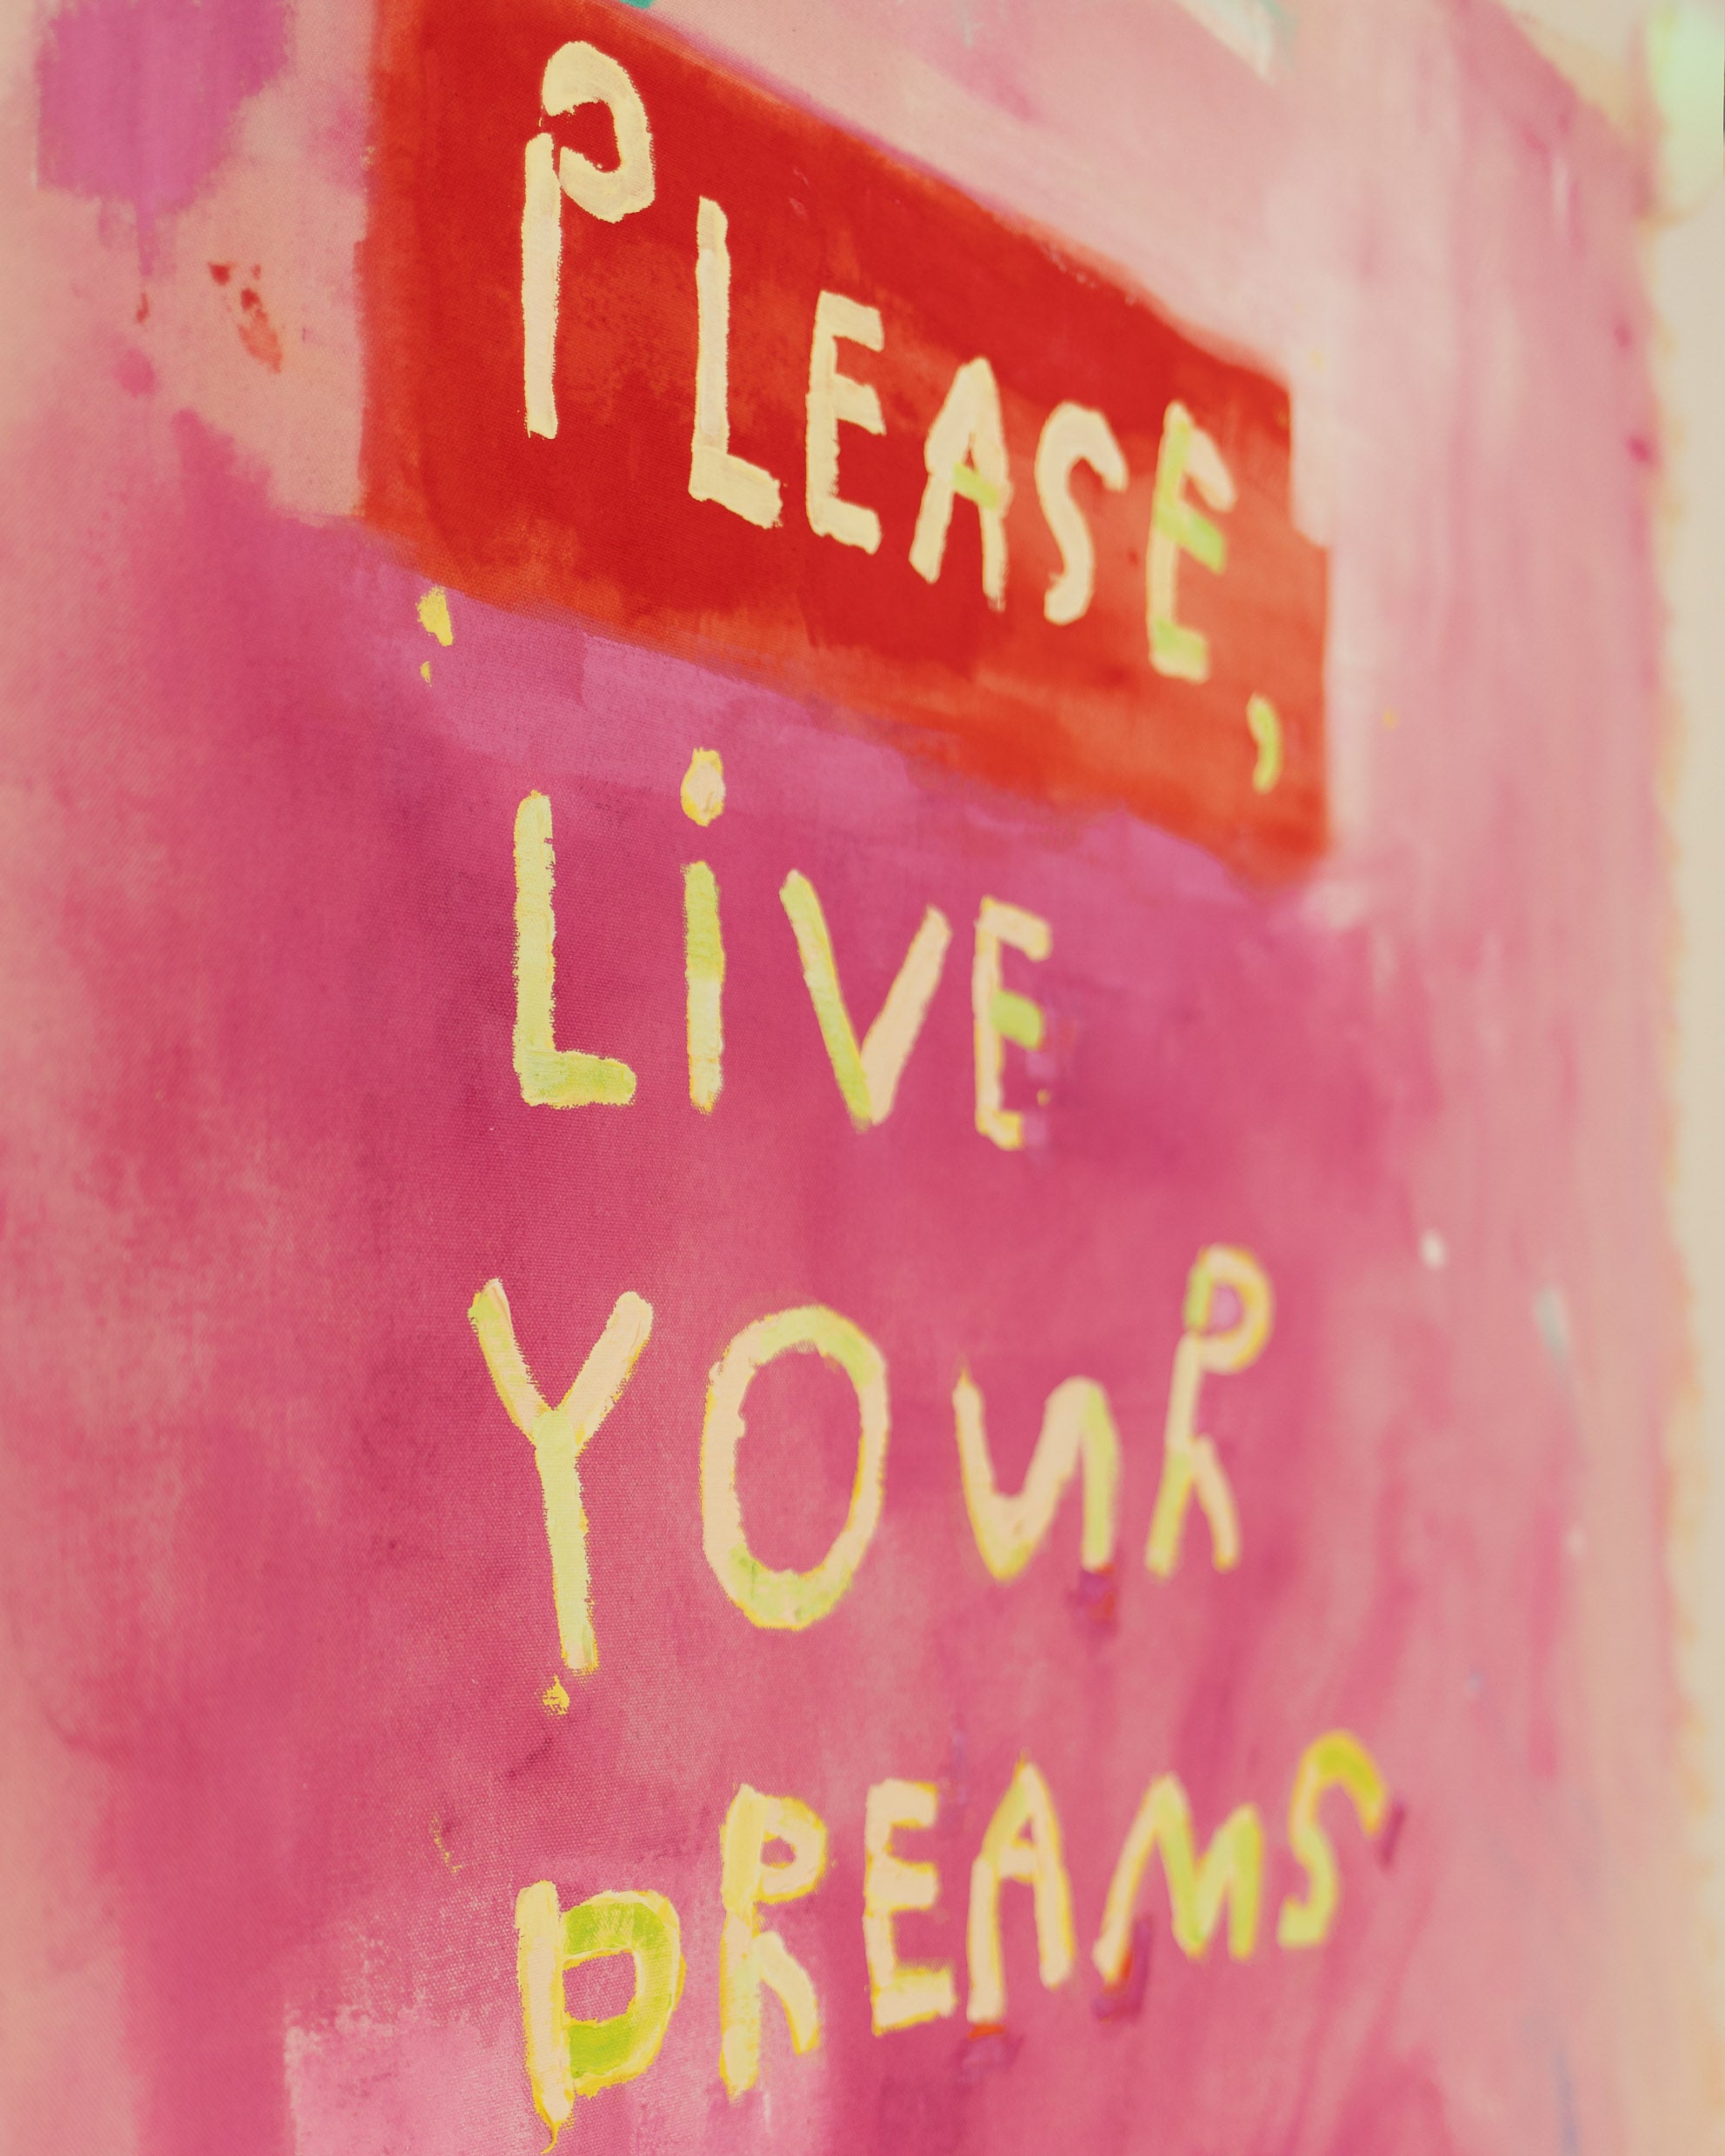 PLEASE,
LiVE
YOuR
DREAMS